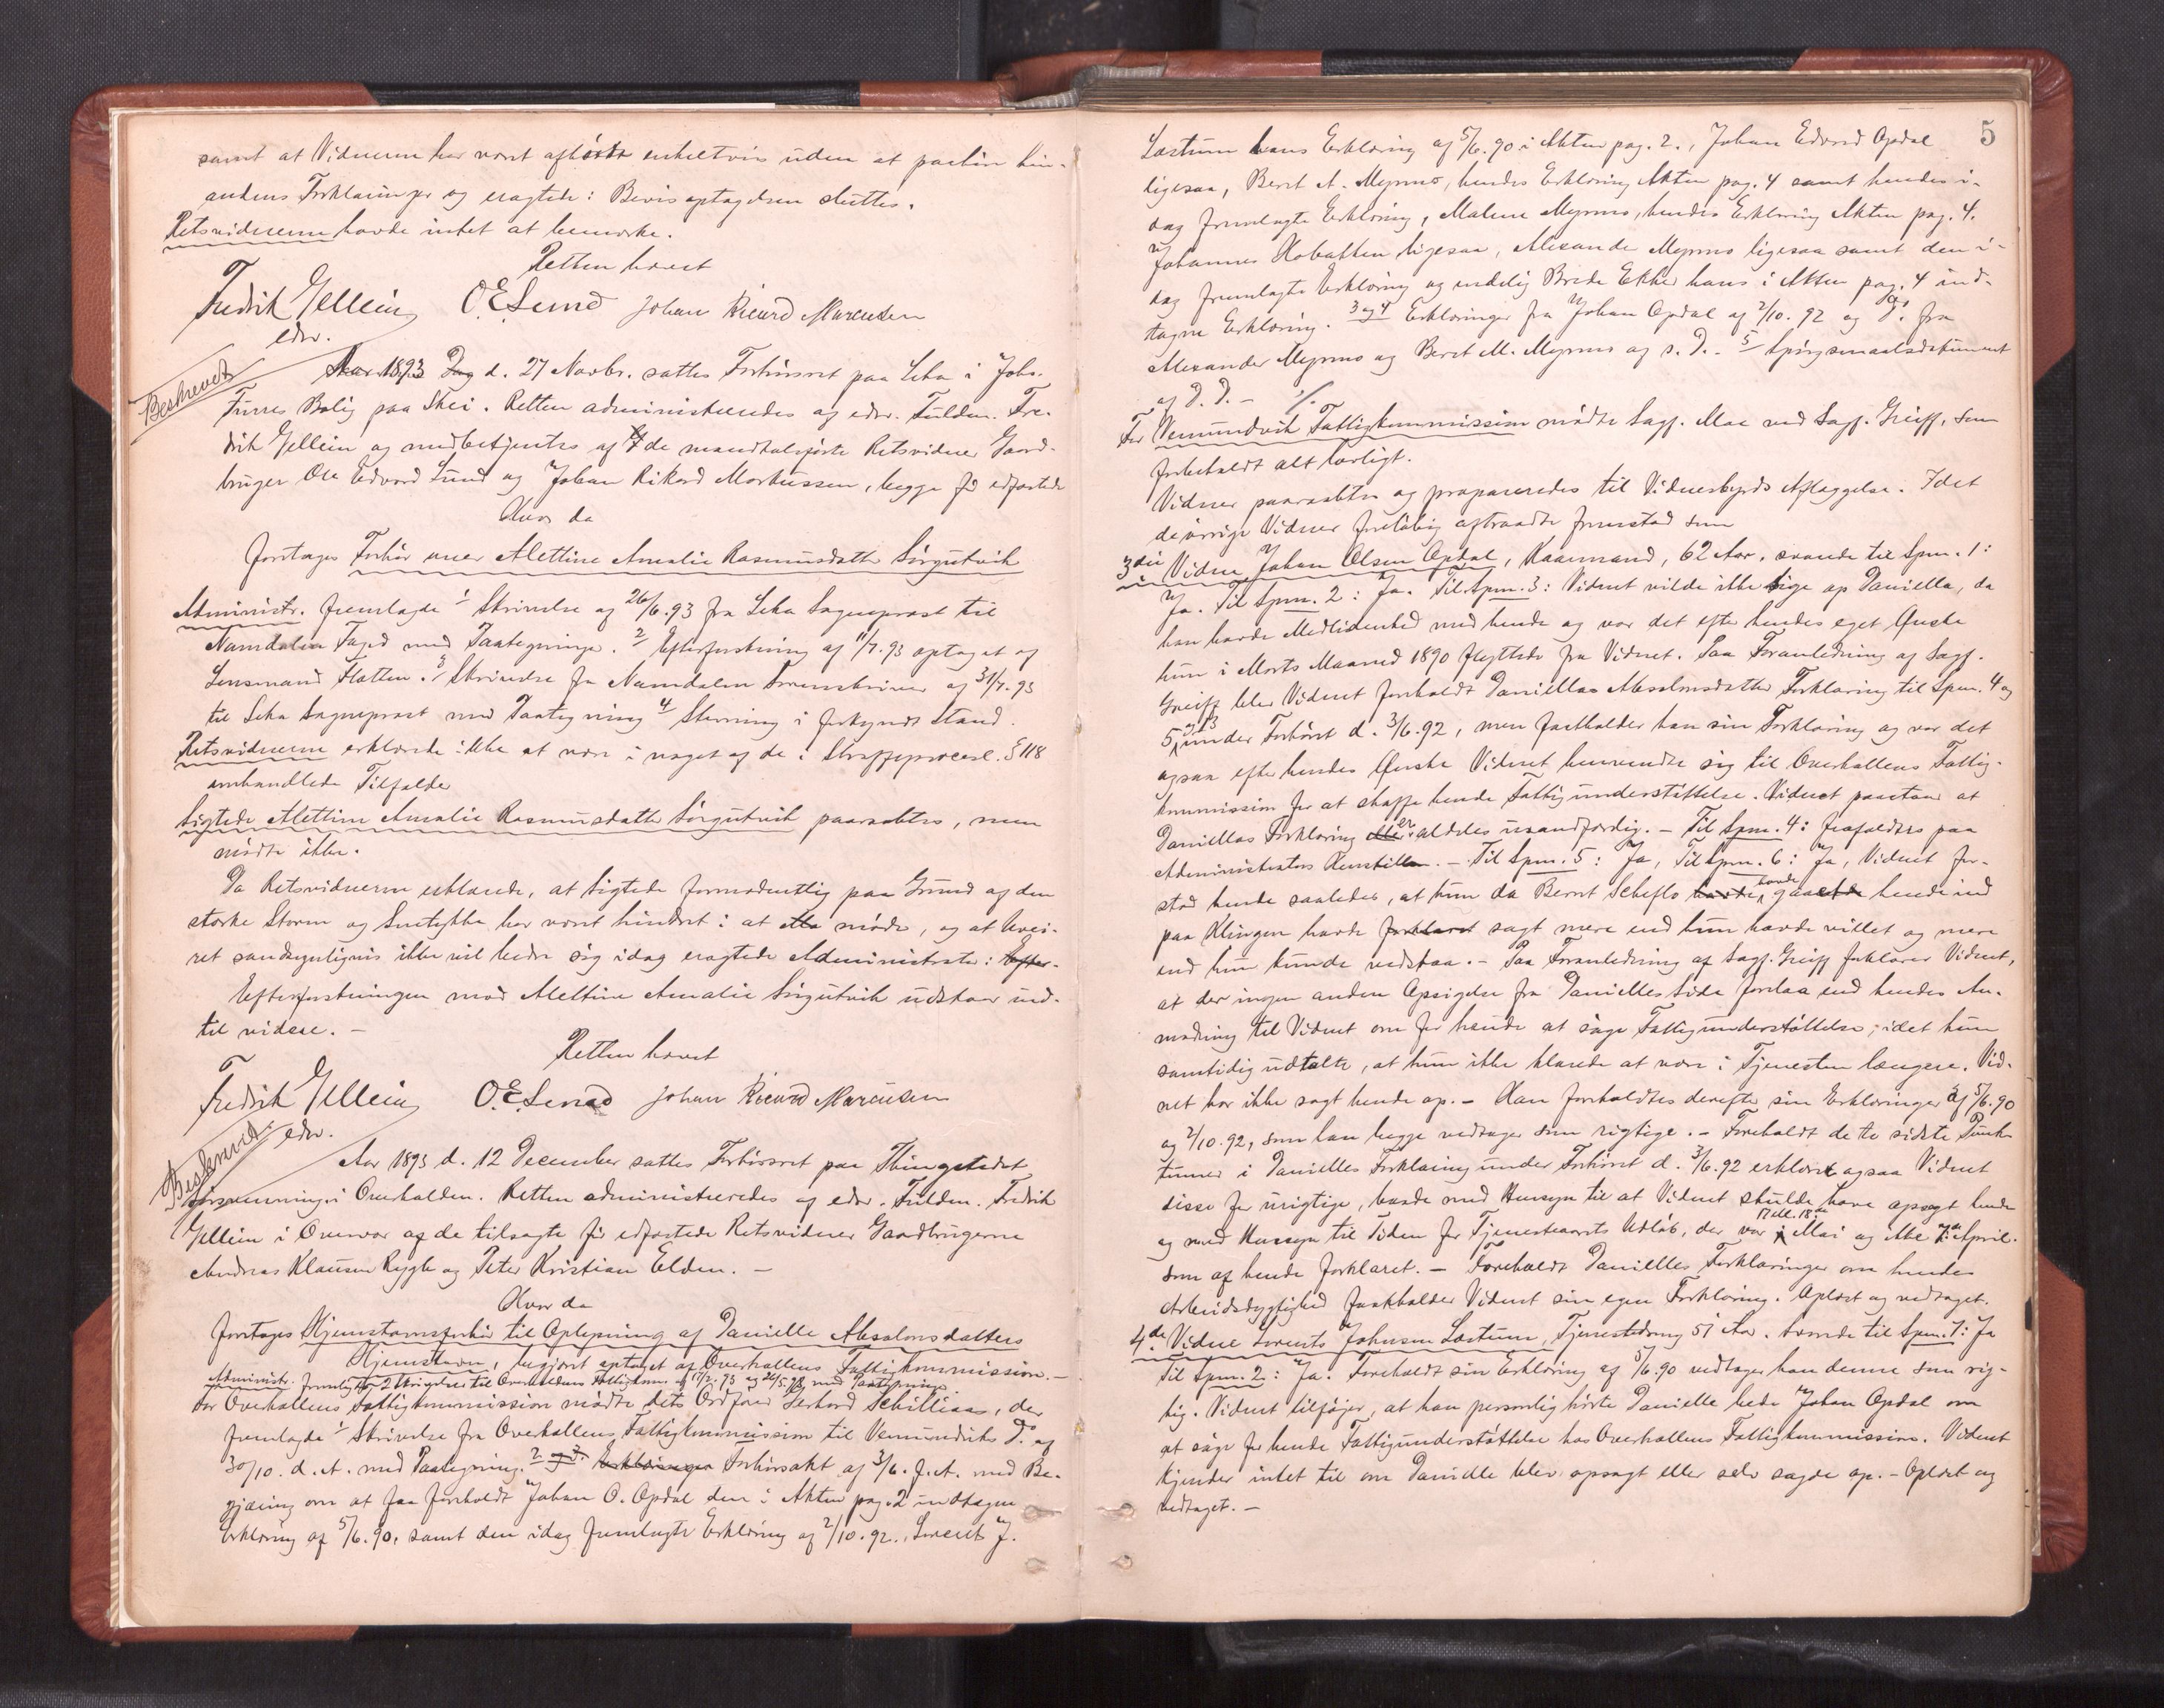 samt at Vidnerne har været afhørte enkeltvis uden at paahøre hin-
andens Forklaringer og eragtede: Bevisoptagelsen sluttes.
Retsvidnerne havde intet at bemærke.
Retten hævet
Fredrik Gellein O.E. Lund Johan Ricard Marcusen
edsv.
Beskrevet
Aar 1893 Dag d. 27 Novbr. sattes Forhørsret paa Leka i Johs.
Furres Bolig paa Skei. Retten administreredes af edsv. Fuldm. Fre-
drik Gellein og medbetjentes af de mandtalsførte Retsvidner Gaard-
bruger Ole Edvard Lund og Johan Rikard Markussen, begge før edfæstede
Hvor da
foretages Forhør over Alettine Amalie Rasmusdatter Sørgutvik
Administr. fremlagde 1 Skrivelse af 26/6.93 fra Leka Sogneprest til
Namdalens Foged med Paategninger. 2 Efterforskning af 11/7.93 optaget af
Lensmand Flatten. 3 Skrivelse fra Namdalens Sorenskriver af 31/7.93
til Leka Sogneprest med Paategning 4 Stevning i forkyndt Stand.
Retsvidnerne erklærede ikke at være i noget af de i Straffeprocesl. § 118
omhandlede Tilfælde
Sigtede Alettine Amalie Rasmusdatter Sørgutvik paaraabtes, men
mødte ikke.
Da Retsvidnerne erklærede, at Sigtede formodentlig paa Grund af den
stærke Storm og Snetykke har været hindret i at møde, og at Uvei-
ret sandsynligvis ikke vil bedre sig idag eragtede Administrator: Efter-
Efterforskningen mod Alettine Amalie Sørgutvik udstaar ind-
til videre. -
Retten hævet
Fredrik Gellein O.E. Lund Johan Ricard Marcusen
edsv.
Beskrevet.
Aar 1893 d. 12 December sattes Forhørsret paa Thingstedet
i Overhalden. Retten administreredes af edsv. Fuldm. Fredrik
Gellein i Overvær af de tilsagte før edfæstede Retsvidner Gaardbrugerne
Andreas Klausen Rygh og Peter Kristian Elden. -
Hvor da
foretages Hjemstavnsforhør til Oplysning af Danielle Absalonsdatters
Hjemstavn, begjært optaget af Overhallens Fattigkommission. -
Administr. fremlagde 2 Skrivelser til Overhaldens Fattigkom. af 17/2.93 og 26/5.93 med Paategninger.
For Overhallens Fattigkommission mødte dets Ordfører Gerhard Schillias, der
fremlagde 1 Skrivelse fra Overhallens Fattigkommission til Vemundviks Do. af
30/10. d.A. med Paategning. 2 og 3 Erklæringer Forhørsakt af 3/6. f.A. med Be-
gjæring om at faa foreholdt Johan O. Opdal den i Akten pag. 2 indtagne
Erklæring af 5/6.90, samt den idag fremlagte Erklæring af 2/10.92., Lorents J.
5
Lostum hans Erklæring af 5/6.90 i Akten pag. 2., Johan Edvard Opdal
ligesaa, Beret A. Myrmo, hendes Erklæring Akten pag. 4 samt hendes i-
dag fremlagte Erklæring, Malene Myrmo, hendes Erklæring Akten pag. 4.
Johannes ligesaa, Alexander Myrmo ligesaa samt den i-
dag fremlagte Erklæring og endelig Brede Ekker hans i Akten pag. 4 ind-
tagne Erklæring. 3 og 4 Erklæringer fra Johan Opdal af 2/10.92 og Do. fra
Alexander Myrmo og Beret M. Myrmo af s.D.. 5 Spørgsmaalsdokument
af D.D. -
For Vemundvik Fattigkommission mødte Sagf. Moe ved Sagf. Greiff, som
forbeholdt alt lovligt.
Vidner paaraabtes og præpareredes til Vidnesbyrds Aflæggelse. Idet
de øvrige Vidner foreløbig aftraadte fremstod som
3die Vidne Johan Olsen Opdal, Kaarmand, 62 Aar. svarede til Spm. 1:
Ja. Til Spm. 2: Ja. Til Spm. 3: Vidnet vilde ikke sige op Daniella, da
han havde Medlidenhed med hende og var det efter hendes eget Ønske
hun i Marts Maaned 1890 flyttede fra Vidnet. Paa Foranledning af Sagf.
Greiff blev Vidnet foreholdt Daniellas Absalonsdatter Forklaring til Spm. 4 og
5 og 13 under Forhøret d. 3/6.92, men fastholder han sin Forklaring og var det
ogsaa efter hendes Ønske Vidnet henvendte sig til Overhallens Fattig-
kommission for at skaffe hende Fattigunderstøttelse. Vidnet paastaar at
Daniellas Forklaring er aldeles usandfærdig. - Til Spm. 4: frafaldtes paa
Administrators Henstillen. - Til Spm. 5: Ja, Til Spm. 6: Ja, Vidnet for-
stod hende saaledes, at hun da Bernt Scheflo havde gaaet hende ind
paa Klingen havde forklaret sagt mere end hun havde villet og mere
end hun kunde vedstaa. - Paa Foranledning af Sagf. Greiff forklarer Vidnet,
at der ingen anden Opsigelse fra Danielles Side forelaa end hendes An-
modning til Vidnet om for hende at søge Fattigunderstøttelse, idet hun
samtidig udtalte, at hun ikke klarede at være i Tjenesten længere. Vid-
net har ikke sagt hende op. - Han foreholdtes derefter sin Erklæringer af 5/6.90
og 2/10.92, som han begge vedtager som rigtige. - Foreholdt de to sidste Punk-
tumer i Danielles Forklaring under Forhøret d. 3/6.92 erklæret ogsaa Vidnet
disse for urigtige, baade med Hensyn til at Vidnet skulde have opsagt hende
og med Hensyn til Tiden for Tjenesteaarets Udløb, der var 17 ell. 18de i Mai og ikke April.
som af hende forklaret. - Foreholdt Danielles Forklaringer om hendes
Arbeidsdygtighed fastholder Vidnet sin egen Forklaring. Oplæst og vedtaget.
4de Vidne Lorents Johnsen Lostum, Tjenestedreng 51 Aar. Svarede til Spm. 1: Ja
Til Spm. 2: Ja. Foreholdt sin Erklæring af 5/6.90 vedtager han denne som rig-
tig. Vidnet tilføier, at han personlig hørte Danielle bede Johan Opdal om
at søge for hende Fattigunderstøttelse hos Overhallens Fattigkommission. Vidnet
kjender intet til om Danielle blev opsagt eller selv sagde op. - Oplæst og
vedtaget. -